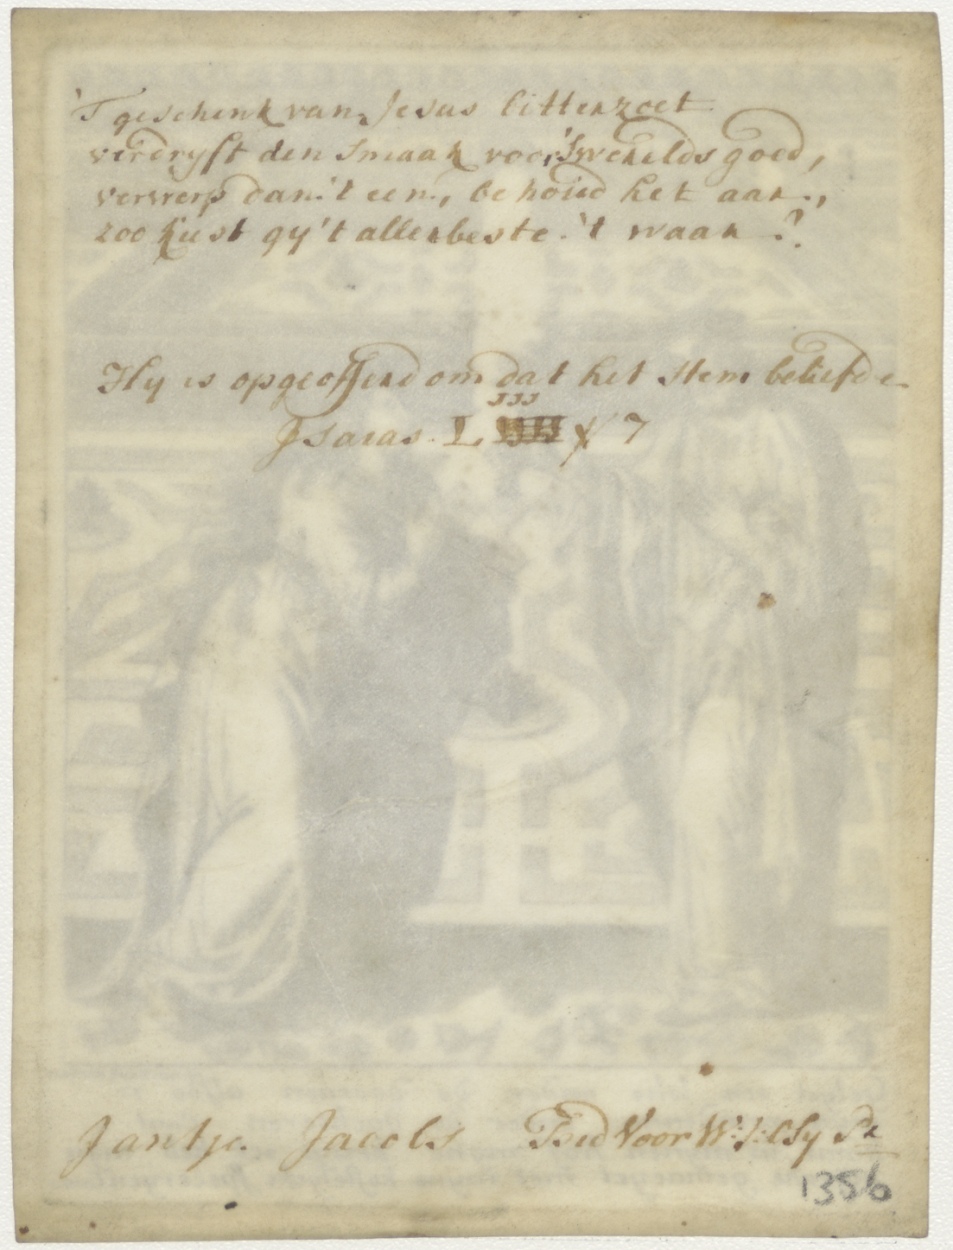 'T geschenk van Jesus bitterzoet
verdryft den smaak voor 'swerelds goed,
verwerp dan 't een, behoud het aar.,
zoo kiest gy 't allerbeste. 't waar?
Hy is opgeoffert omdat het Hem beliefde
JJJ
Jsaias. L 7
Jantje Jacobs Bid Voor
1356